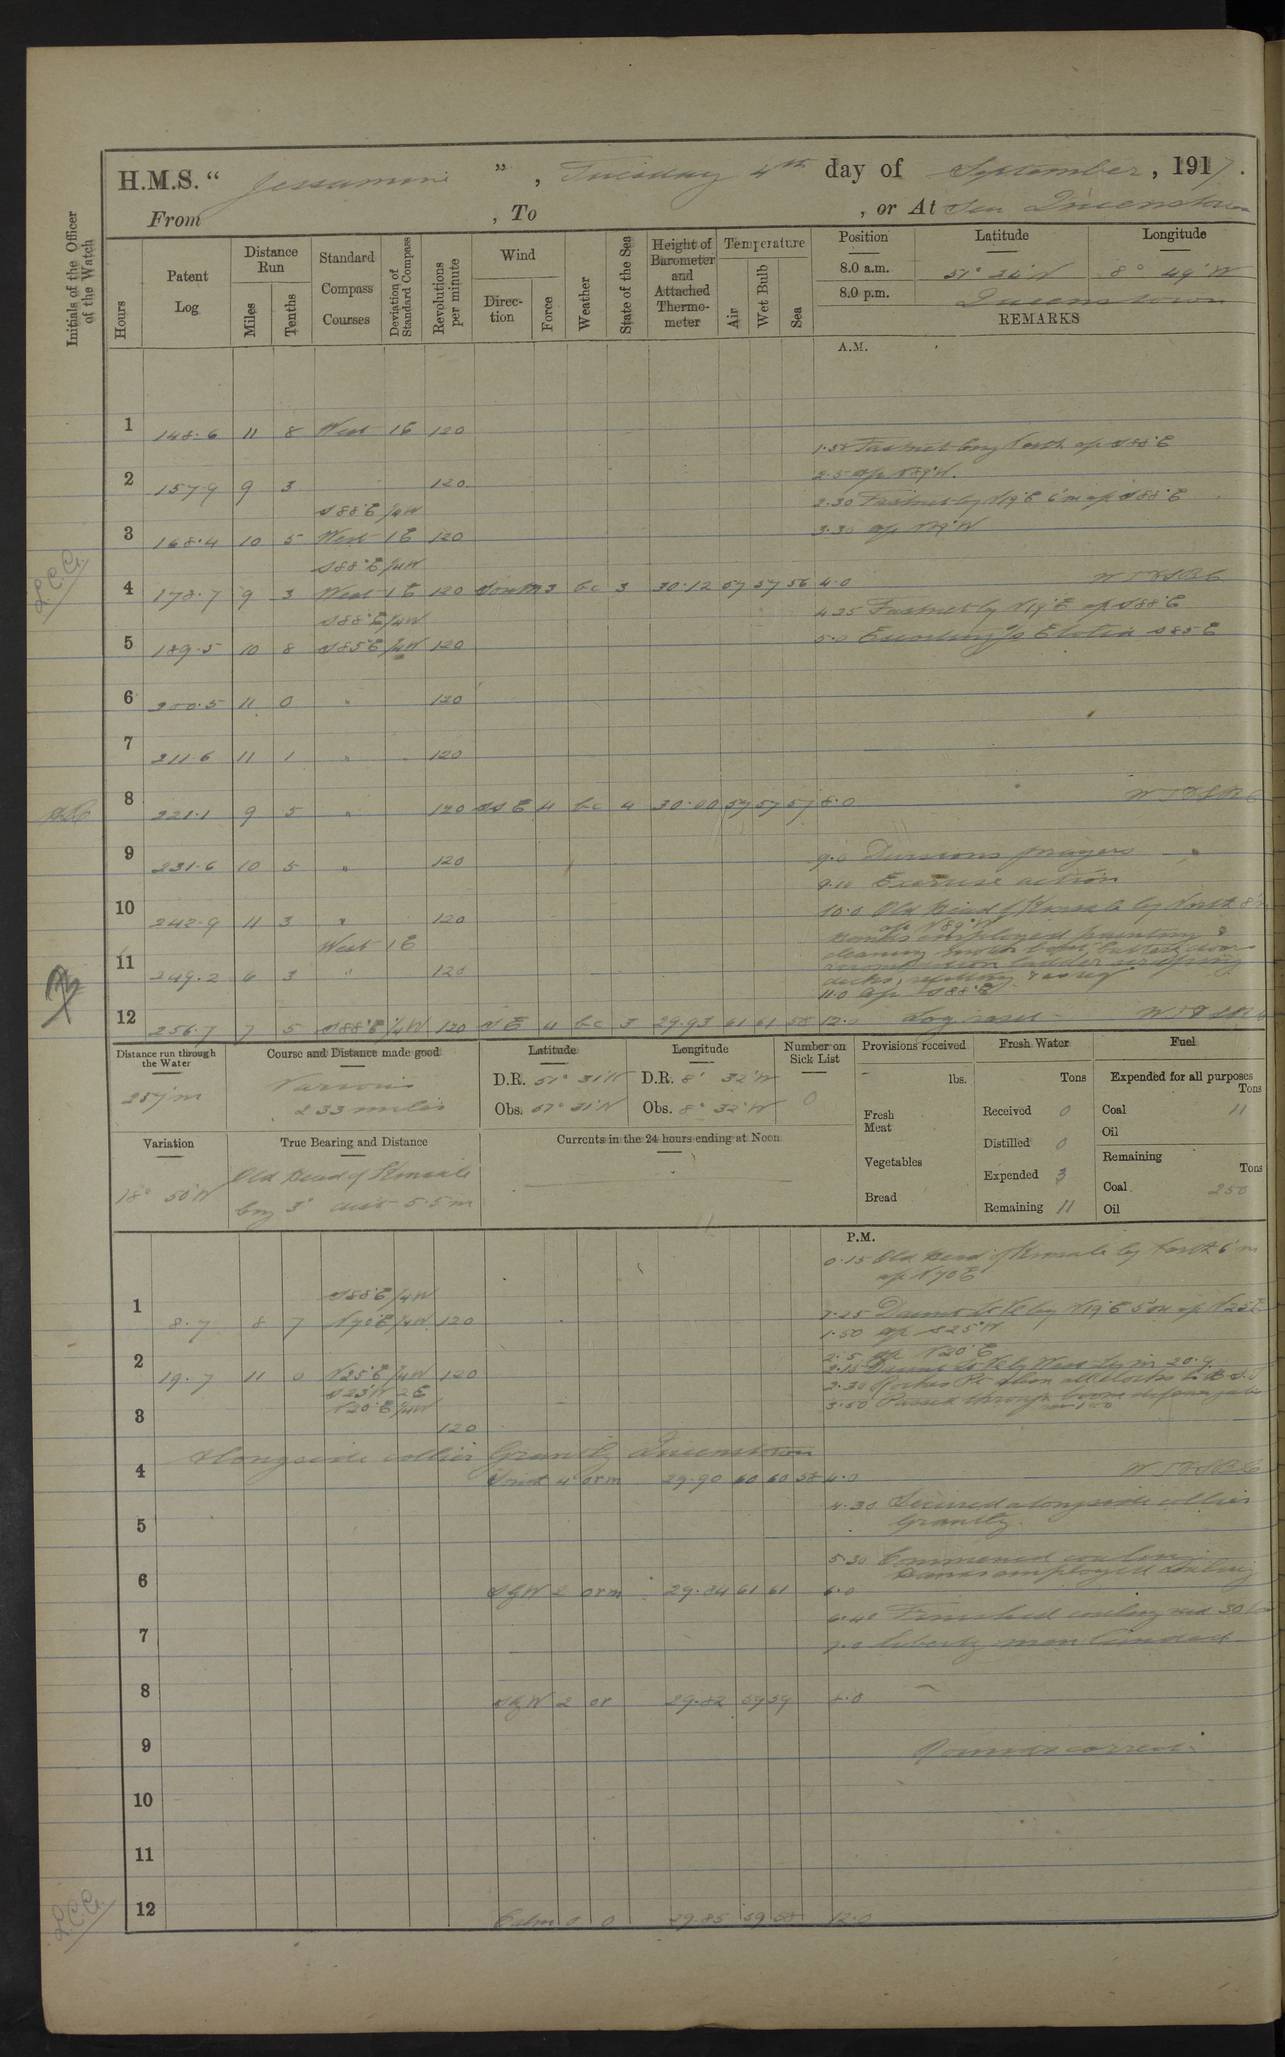 H.M.S. "Jessamine", Tuesday 4th day of September, 1917.
From , To , or At Sea Queenstown
Initials of the Officer of the Watch
Hours
Patent Log
Distance Run
Miles
Tenths
Standard Compass Courses
Deviation of Standard Compass
Revolutions per minute
Wind
Direction
Force
Weather
State of the Sea
Height of Barometer and Attached Thermometer
Temperature
Air
Wet Bulb
Sea
Position Latitude Longitude
8.0 a.m. 51° 34'N 8° 49'W
8.0 p.m. Queenstown
REMARKS
A.M.
1 148.6 11 8 West 1E 120
1.58 Fastnet brg North a/c S88°E
2 157.9 9 3 120
2.5 a/c N89°W.
S88°E 1/4W
2.30 Fastnet by N19°E 6'm a/c S88°E
3 168.4 10 5 West 1E 120
3.30 a/c N89°W
S88°E 1/4W
4 178.7 9 3 West 1E 120 South 3 bc 3 30.12 57 57 56 4.0
S88°E 1/4W
4.35 Fastnet by N19°E a/c S88°E
5 189.5 10 8 S85°E 1/4W 120
5.0 Escorting S85E
6 200.5 11 0 " 120
7 211.6 11 1 " 120
8 221.1 9 5 " 120 SSE 4 bc 4 30.00 57 57 57 8.0
9 231.6 10 5 " 120
9.0 Divisions prayers
9.10 Exercise action
10 242.9 11 3 " 120
10.0 Old Head of Kinsale by North 8'm
a/c N89°W
West 1E
Hands employed painting &
cleaning
11 249.2 6 3 " 120
ladder scraping
decks,
11.0 a/c S88°E
12 256.7 7 5 S88°E 1/4W 120 SE 4 bc 3 29.93 61 61 58 12.0
Distance run through the Water
257m
Course and Distance made good
Various
233 miles
Latitude
D.R. 51° 31'N
Obs. 51° 31'N
Longitude
D.R. 8° 32'W
Obs. 8° 32'W
Number on Sick List
0
Provisions received
lbs.
Fresh Meat
Vegetables
Bread
Fresh Water
Tons
Received 0
Distilled 0
Expended 3
Remaining 11
Fuel
Expended for all purposes
Tons
Coal 11
Oil
Remaining
Tons
Coal 250
Oil
Variation
18° 50'W
True Bearing and Distance
Old Head of Kinsale
brg 3° dist 5.5m
Currents in the 24 hours ending at Noon
P.M.
0.15 Old Head of Kinsale by North 6'm
a/c N70E
S88°E 1/4W
1 8.7 8 7 N70°E 1/4W 120
1.25 Daunt Lt Ve by N19°E 5'm a/c N25E
1.50 a/c S25°W
2.5 a/c N20°E
2 19.7 11 0 N25°E 1/4W 120
2.15 Daunt Lt Ve by West
S23°W 2E
N20°E 1/4W
3.30 Roches Pt
3.50 Passed through boom defence
3 120
Alongside collier Granity Queenstown
4 4 orm 29.90 60 60 58 4.0
4.30 Secured alongside collier
Granity.
5
5.30 Commenced coaling
Hands employed coaling
6 SgW 2 orm 29.84 61 61 6.0
6.40 Finished coaling recd 30 tons
7
7.0 Liberty men landed
8 SgW 2 or 29.82 59 59 8.0
9 Rounds correct
10
11
12 Calm 0 0 29.85 59 58 12.0